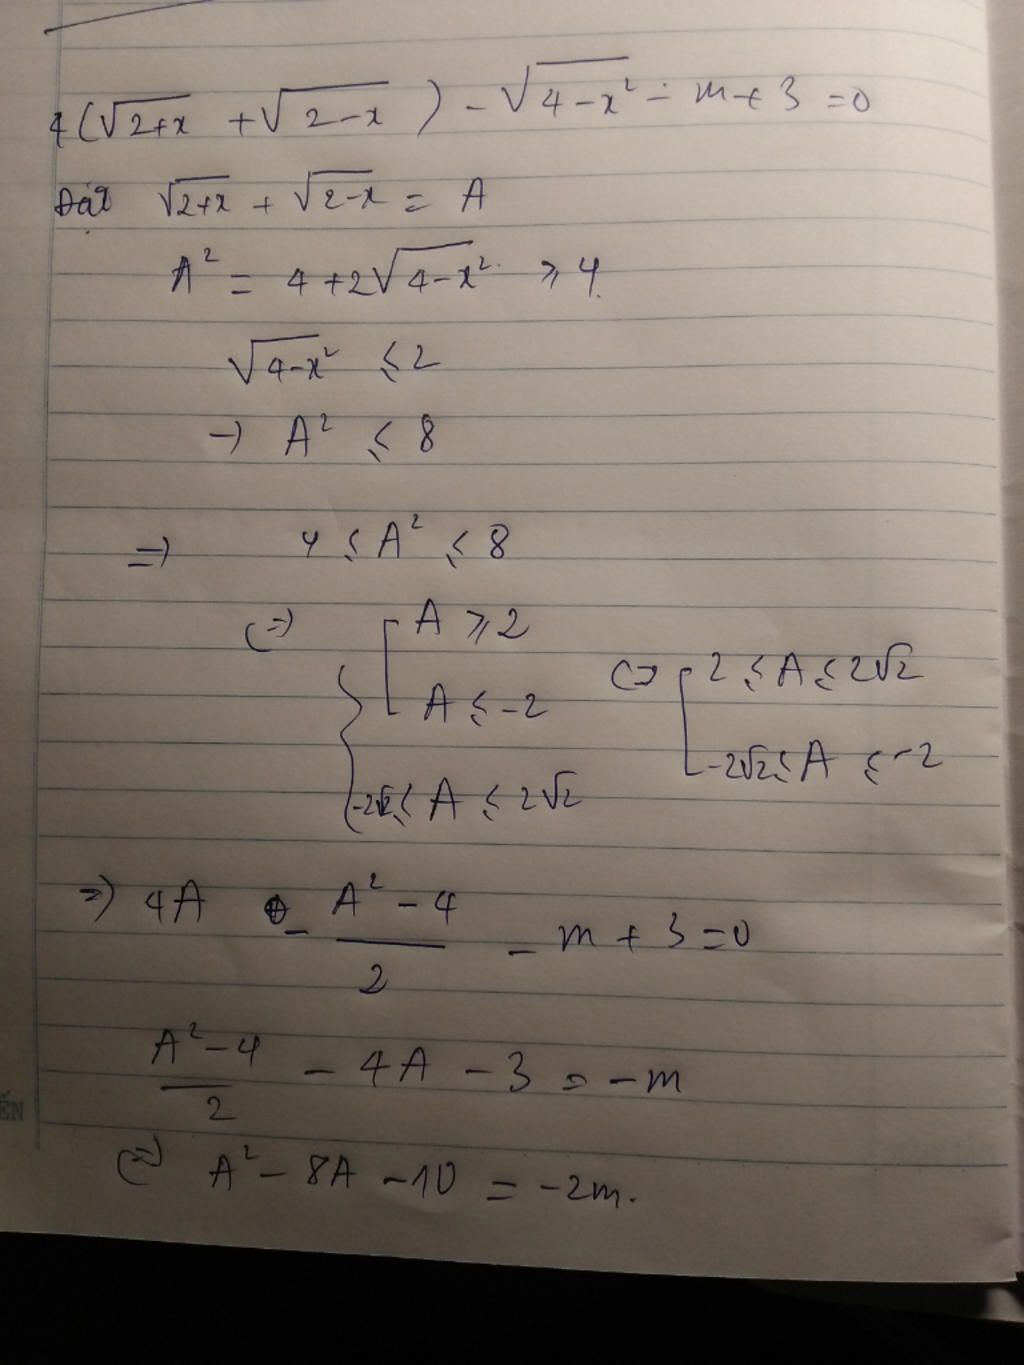 4(√(2+x) + √(2-x)) - √(4-x²) - m + 3 = 0
Đặt √(2+x) + √(2-x) = A
A² = 4 + 2√(4-x²) ⩾ 4
√(4-x²) ⩽ 2
→ A² ⩽ 8
=> 4 ⩽ A² ⩽ 8
(=) { [ A ⩾ 2
A ⩽ -2
-2√2 ⩽ A ⩽ 2√2
(=> [ 2 ⩽ A ⩽ 2√2
-2√2 ⩽ A ⩽ -2
=> 4A - (A² - 4)/2 - m + 3 = 0
(A² - 4)/2 - 4A - 3 = -m
(=) A² - 8A - 10 = -2m.
ẾN